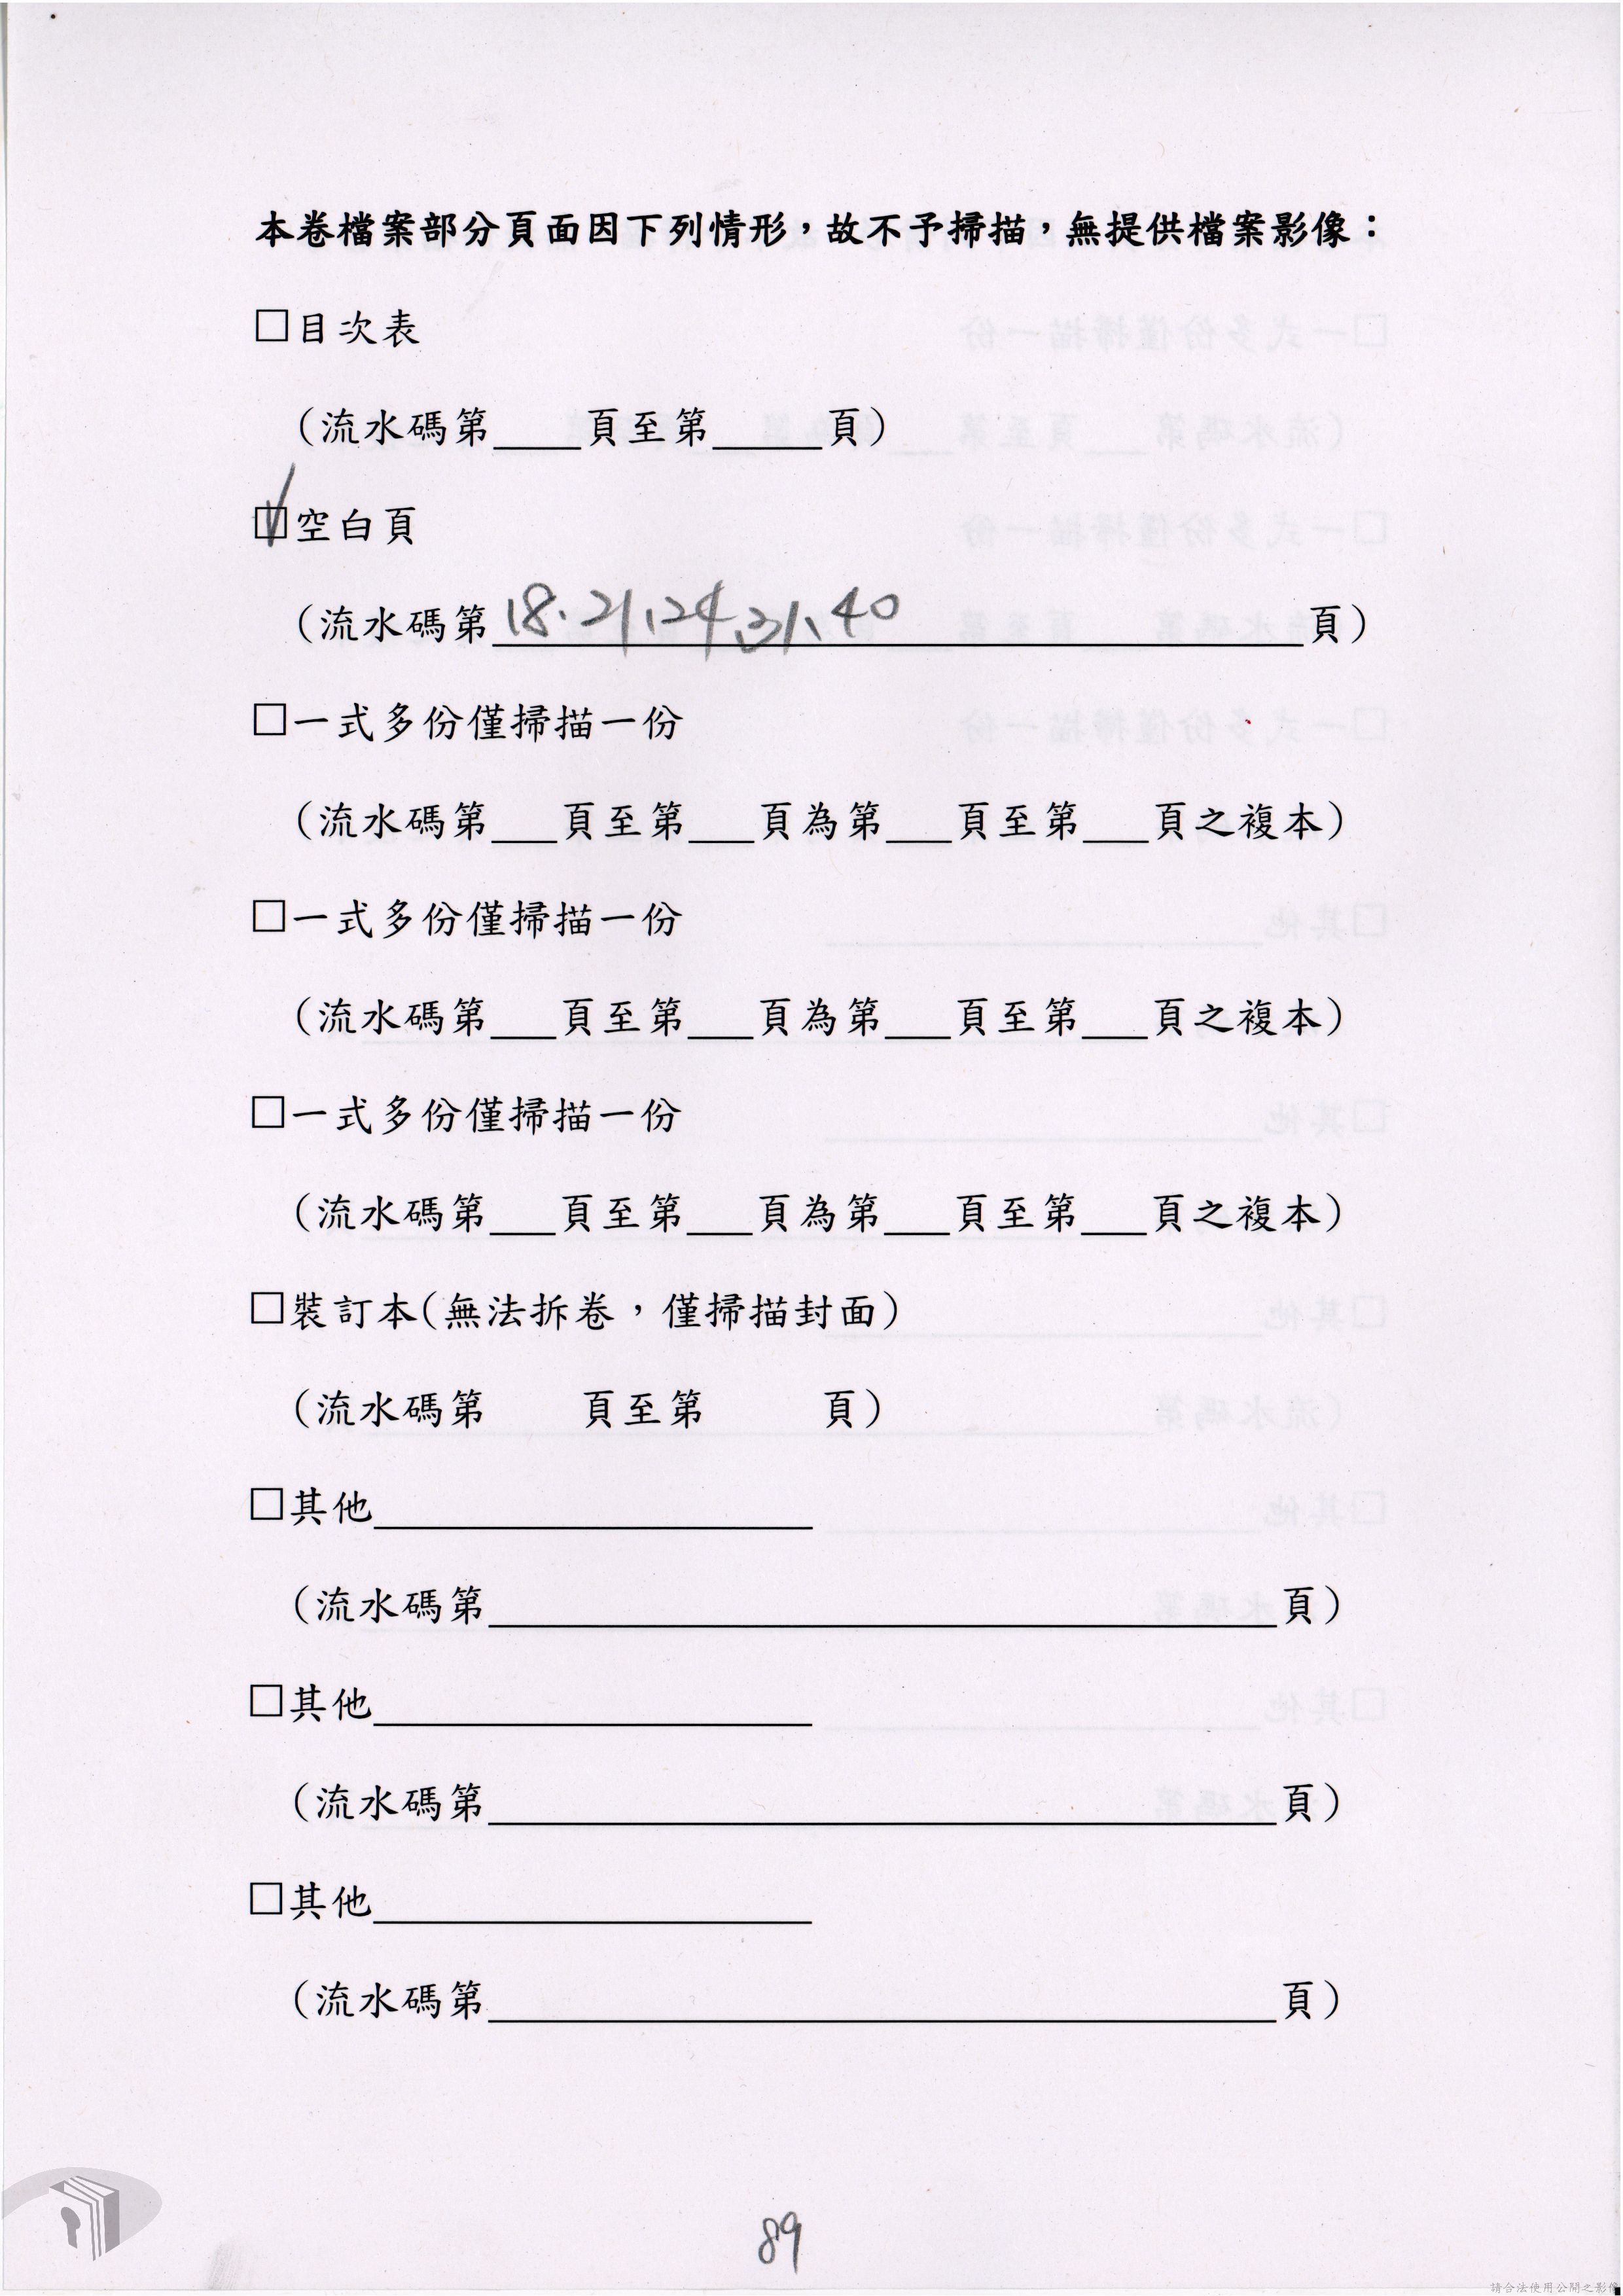 本卷檔案部分頁面因下列情形，故不予掃描，無提供檔案影像：
□目次表
（流水碼第____頁至第_____頁）
☑空白頁
（流水碼第18、21、24、31、40頁）
□一式多份僅掃描一份
（流水碼第___頁至第___頁為第___頁至第___頁之複本）
□一式多份僅掃描一份
（流水碼第___頁至第___頁為第___頁至第___頁之複本）
□一式多份僅掃描一份
（流水碼第___頁至第___頁為第___頁至第___頁之複本）
□裝訂本(無法拆卷，僅掃描封面)
（流水碼第　　頁至第　　　頁）
□其他____________________
（流水碼第____________________________________頁）
□其他____________________
（流水碼第____________________________________頁）
□其他____________________
（流水碼第____________________________________頁）
89
請合法使用公開之影像